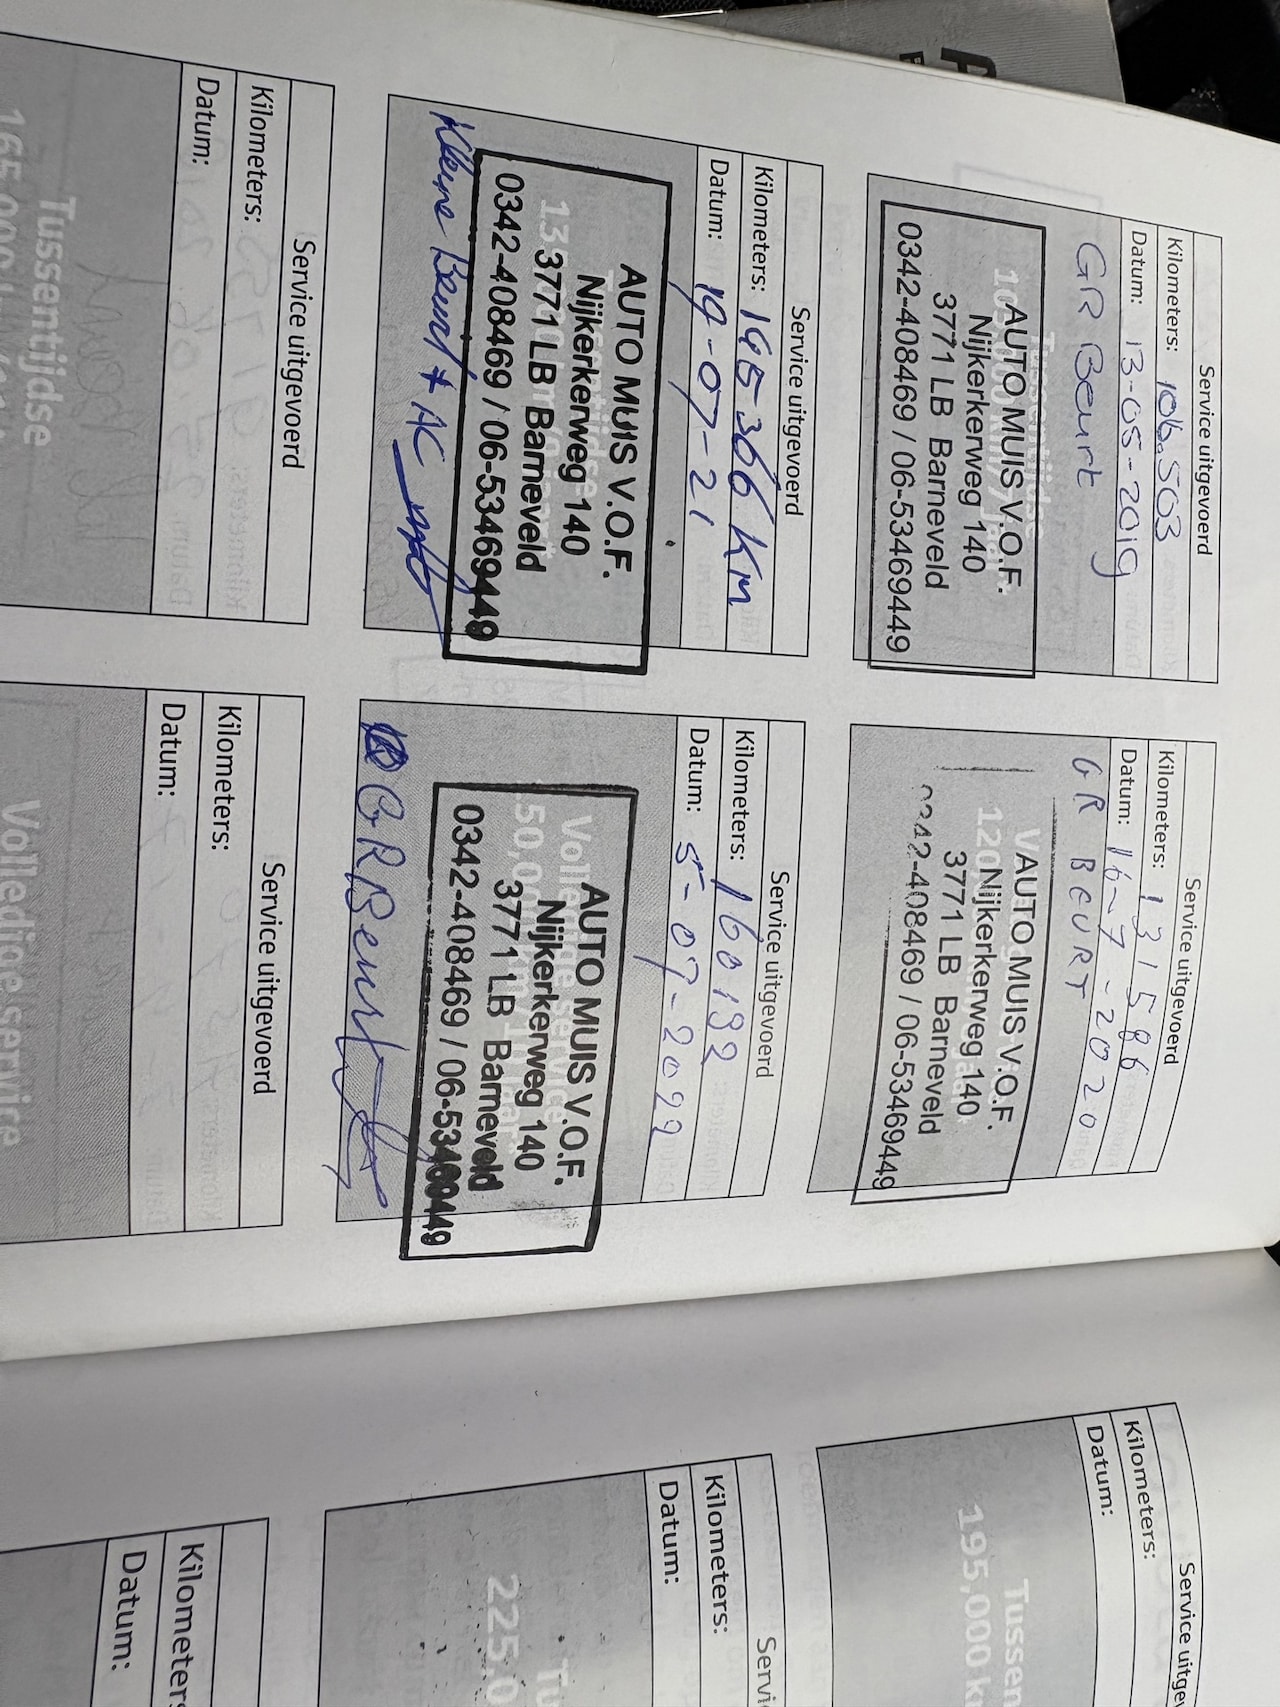 Service uitgevoerd
Kilometers: 106.503
Datum: 13-05-2019
GR Beurt
AUTO MUIS V.O.F.
Nijkerkerweg 140
3771 LB Barneveld
0342-408469 / 06-53469449
Service uitgevoerd
Kilometers: 131586
Datum: 16-7-2020
GR BEURT
AUTO MUIS V.O.F.
Nijkerkerweg 140
3771 LB Barneveld
0342-408469 / 06-53469449
Service uitgevoerd
Kilometers: 195366 KM
Datum: 19-07-21
AUTO MUIS V.O.F.
Nijkerkerweg 140
3771 LB Barneveld
0342-408469 / 06-53469449
Kleine Beurt + AC
Service uitgevoerd
Kilometers: 160192
Datum: 5-07-2022
Volledige service
AUTO MUIS V.O.F.
Nijkerkerweg 140
3771 LB Barneveld
0342-408469 / 06-53469449
GR Beurt
Service uitgevoerd
Kilometers:
Datum:
Tussentijdse
165.000
Service uitgevoerd
Kilometers:
Datum:
Volledige service
Service uitgev
Kilometers:
Datum:
Tussen
195,000 k
Servi
Kilometers:
Datum:
Tu
225,0
Kilometers
Datum: